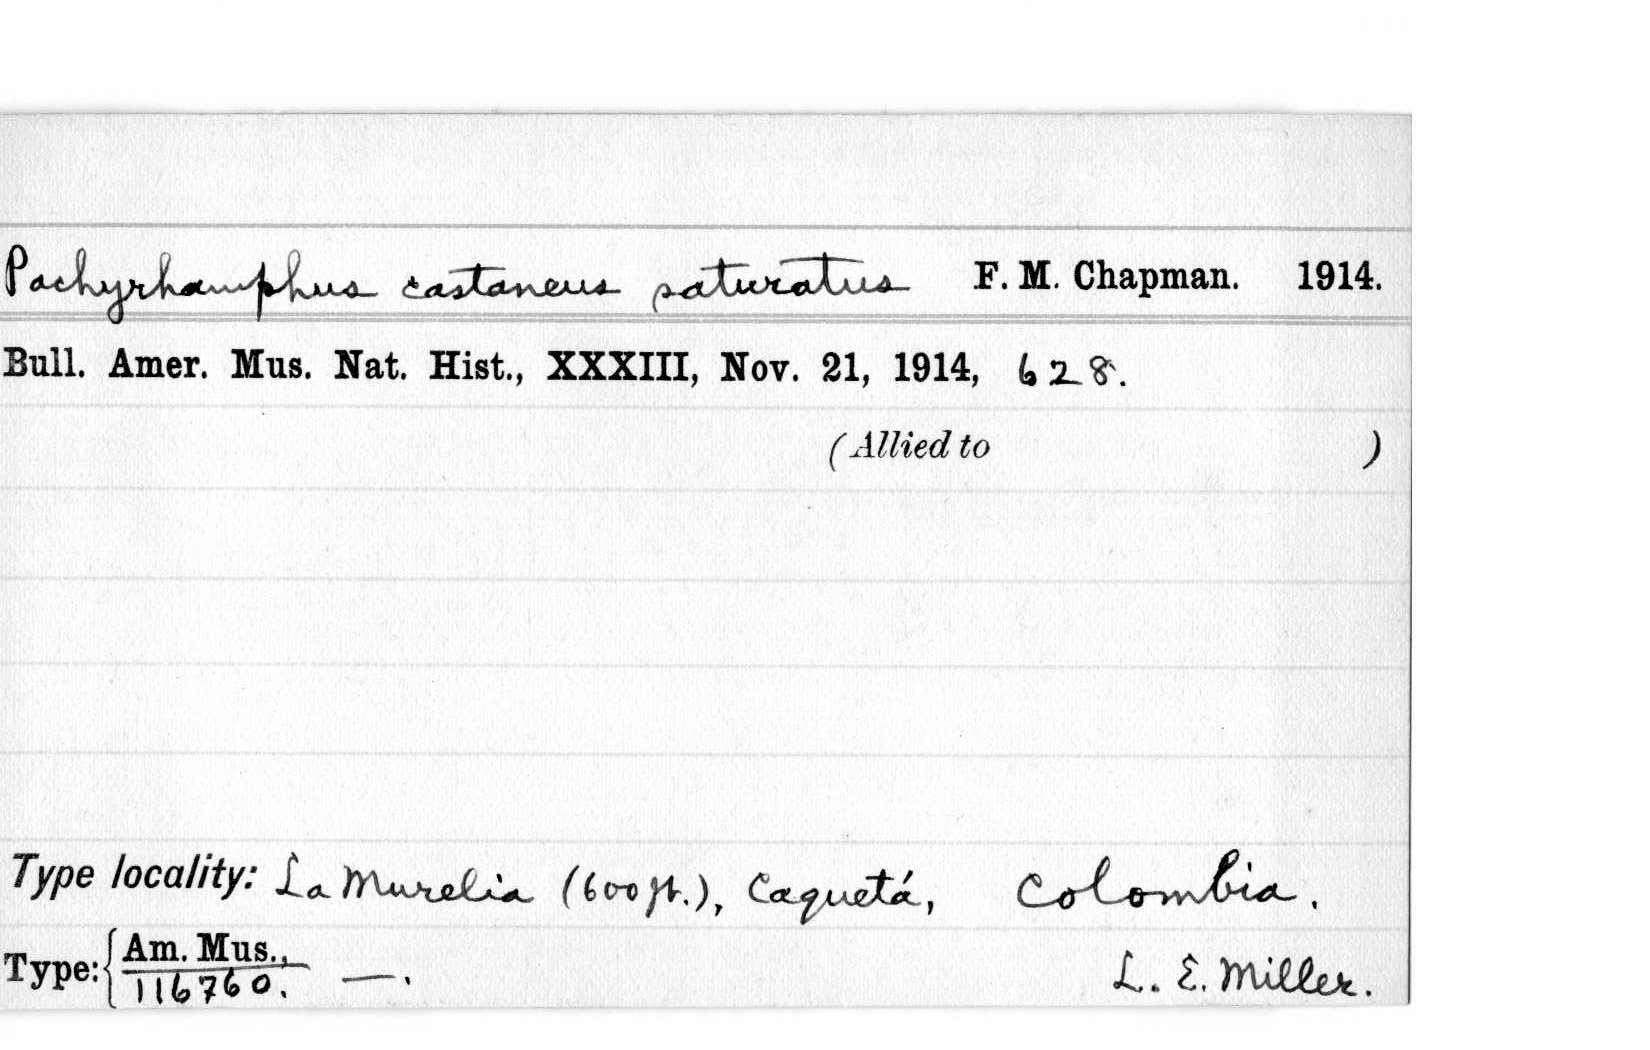 Pachyrhamphus castaneus saturatus F. M. Chapman. 1914.
Bull. Amer. Mus. Nat. Hist., XXXIII, Nov. 21, 1914, 628.
(Allied to )
Type locality: La Murelia (600 ft.), Caquetá, Colombia.
Type: { Am. Mus., 116760. —. L. E. Miller.